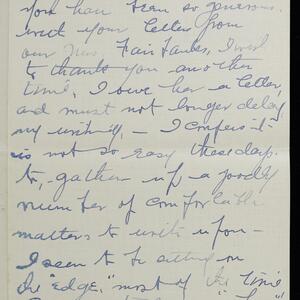 you have been so generous
with your letters from
our Mrs. Fairbanks, I wish
to thank you another
time, I owe her a letter,
and must not longer delay
my writing, — I confess it
is not so easy these days
to, gather up a goodly
number of comfortable
matters to write upon —
I seem to be sitting on
the "edge," most of the time